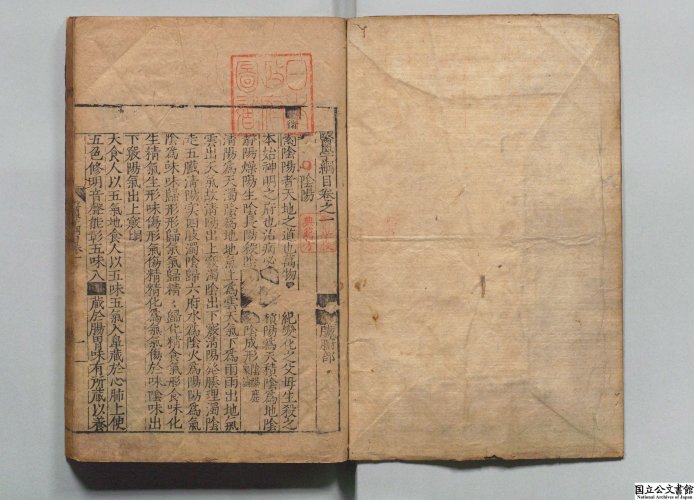 醫學綱目卷之一
陰陽臟腑部
陰陽
素陰陽者天地之道也萬物 紀變化之父母生殺之
本始神明之府也治病必 積陽爲天積陰爲地陰
靜陽燥陽生陰長陽殺陰 陰成形
清陽爲天濁陰爲地地氣上爲雲天氣下爲雨雨出地氣
雲出天氣故清陽出上竅濁陰出下竅清陽發腠理濁陰
走五臟清陽實四肢濁陰歸六府水爲陰火爲陽陽爲氣
陰爲味味歸形形歸氣氣歸精精歸化精食氣形食味化
生精氣生形味傷形氣傷精精化爲氣氣傷於味陰味出
下竅陽氣出上竅
天食人以五氣地食人以五味五氣入鼻藏於心肺上使
五色修明音聲能彰五味入 藏於腸胃味有所藏以養
日本政府圖書
国立公文書館
National Archives of Japan